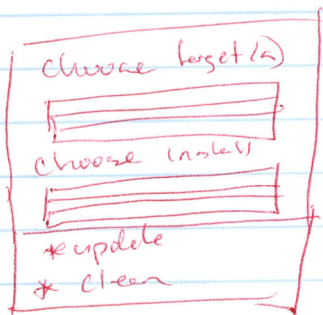 choose target(s)
choose install
* update
* clean